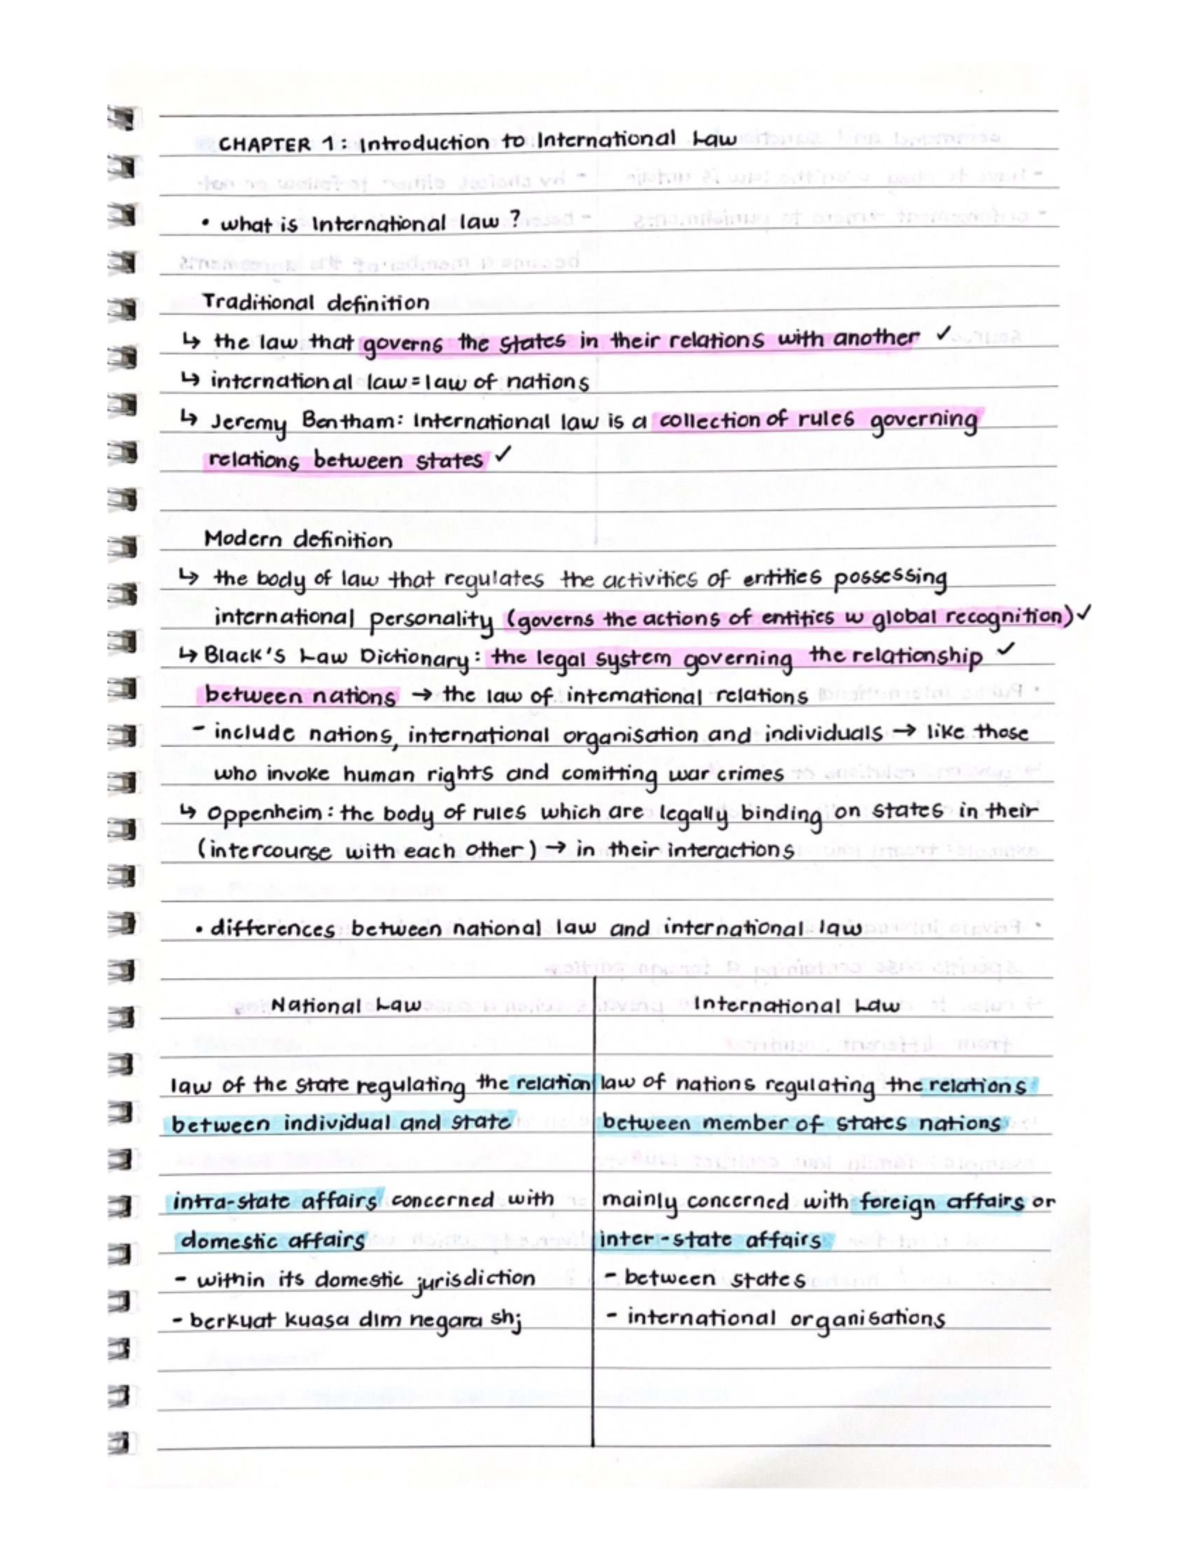 CHAPTER 1: Introduction to International Law
• what is International law?
Traditional definition
↳ the law that governs the states in their relations with another ✓
↳ international law = law of nations
↳ Jeremy Bentham: International law is a collection of rules governing
relations between states ✓
Modern definition
↳ the body of law that regulates the activities of entities possessing
international personality (governs the actions of entities w global recognition) ✓
↳ Black's Law Dictionary: the legal system governing the relationship ✓
between nations → the law of international relations
- include nations, international organisation and individuals → like those
who invoke human rights and comitting war crimes
↳ Oppenheim: the body of rules which are legally binding on states in their
(intercourse with each other) → in their interactions
• differences between national law and international law
National Law
law of the state regulating the relation
between individual and state
intra-state affairs concerned with
domestic affairs
- within its domestic jurisdiction
- berkuat kuasa dlm negara shj
International Law
law of nations regulating the relations
between member of states nations
mainly concerned with foreign affairs or
inter-state affairs
- between states
- international organisations